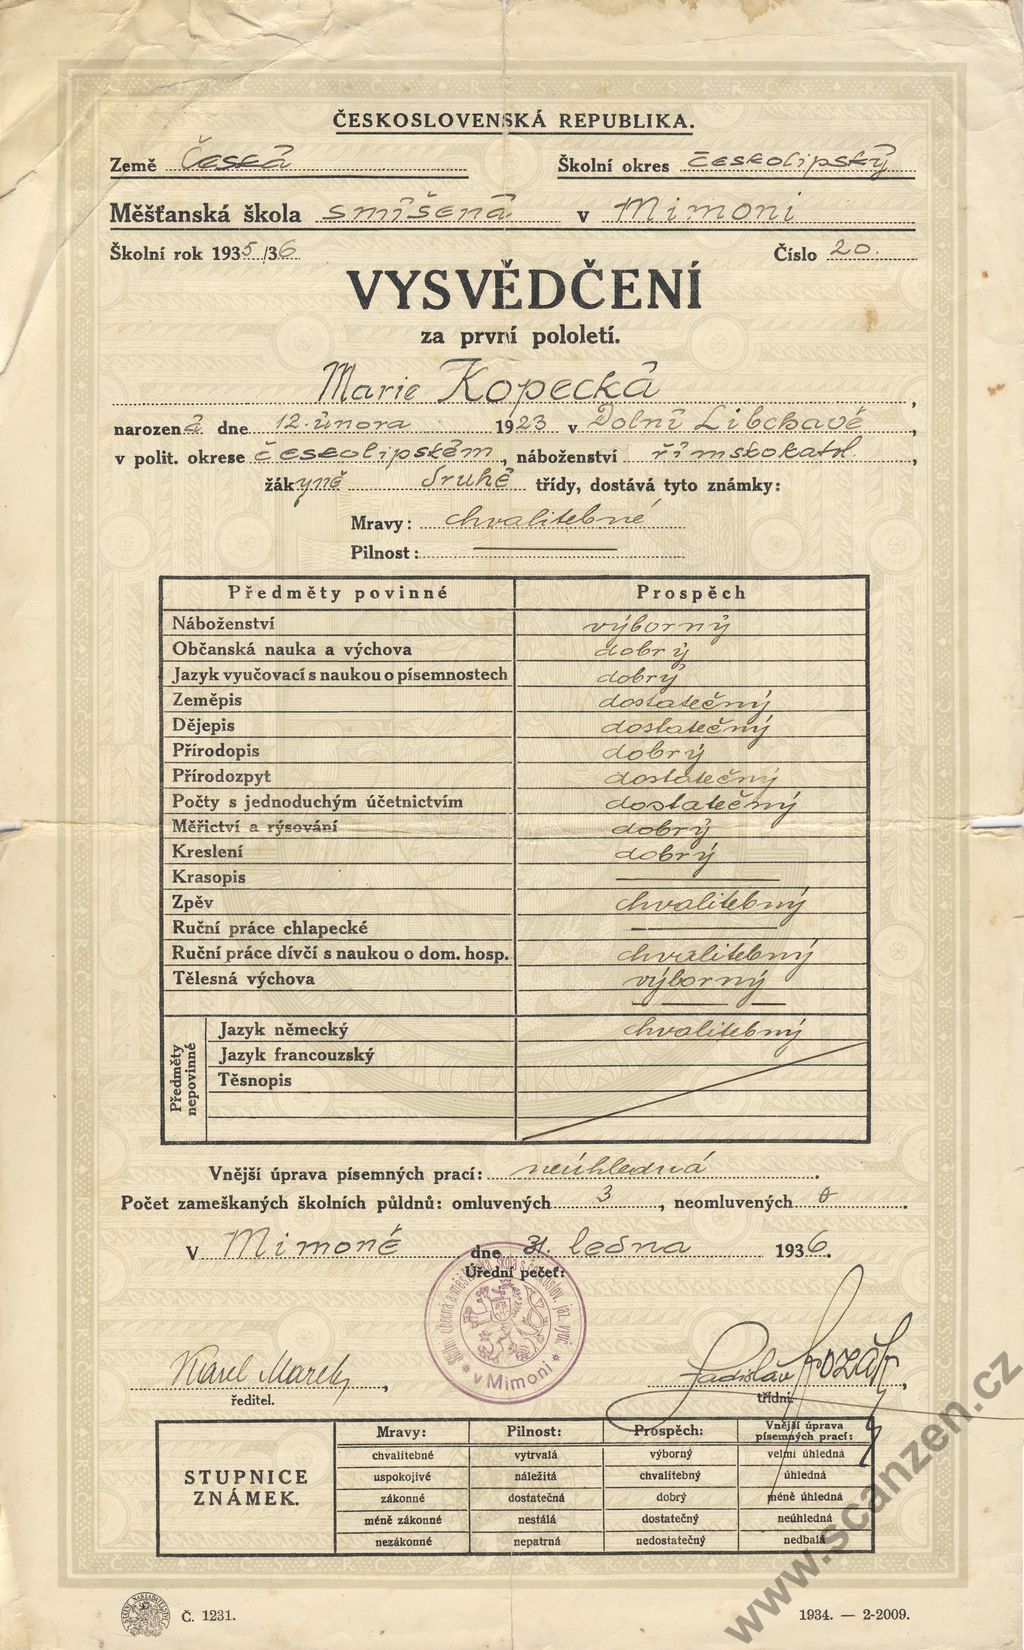 ČESKOSLOVENSKÁ REPUBLIKA.
Země Česká Školní okres českolipský
Měšťanská škola smíšená v Mimoni
Školní rok 1935/36 Číslo 20.
VYSVĚDČENÍ
za první pololetí.
Marie Kopecká,
narozená dne 12. února 1923 v Dolní Libchavě,
v polit. okrese českolipském, náboženství římskokatol.,
žákyně druhé třídy, dostává tyto známky:
Mravy: chvalitebné
Pilnost:
Předměty povinné Prospěch
Náboženství výborný
Občanská nauka a výchova dobrý
Jazyk vyučovací s naukou o písemnostech dobrý
Zeměpis dostatečný
Dějepis dostatečný
Přírodopis dobrý
Přírodozpyt dostatečný
Počty s jednoduchým účetnictvím dostatečný
Měřictví a rýsování dobrý
Kreslení dobrý
Krasopis
Zpěv chvalitebný
Ruční práce chlapecké
Ruční práce dívčí s naukou o dom. hosp. chvalitebný
Tělesná výchova výborný
Předměty nepovinné
Jazyk německý chvalitebný
Jazyk francouzský
Těsnopis
Vnější úprava písemných prací: neúhledná.
Počet zameškaných školních půldnů: omluvených 3, neomluvených 0.
V Mimoně dne 31. ledna 1936.
Úřední pečeť:
v Mimoni
Karel Marek, Ladislav Kozák,
ředitel. třídní.
STUPNICE ZNÁMEK.
Mravy: Pilnost: Prospěch: Vnější úprava písemných prací:
chvalitebné vytrvalá výborný velmi úhledná
uspokojivé náležitá chvalitebný úhledná
zákonné dostatečná dobrý méně úhledná
méně zákonné nestálá dostatečný neúhledná
nezákonné nepatrná nedostatečný nedbalá
Č. 1231. 1934. — 2-2009.
www.scanzen.cz